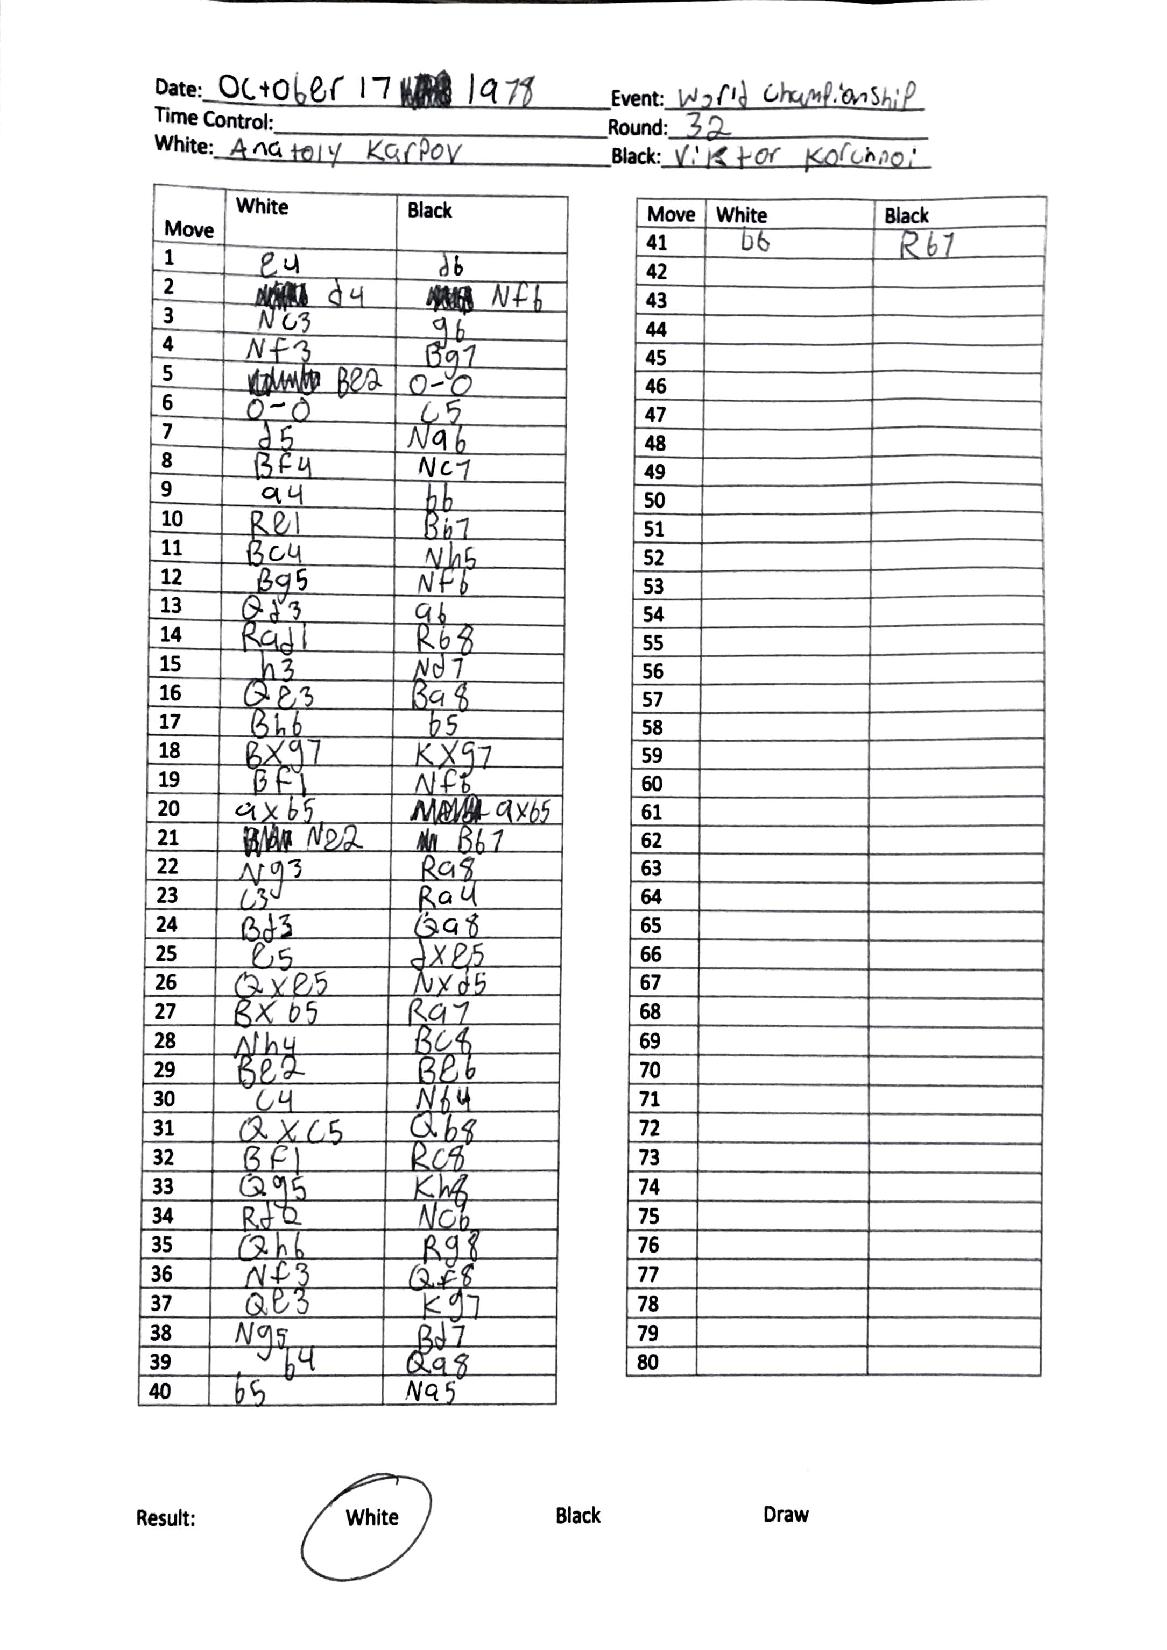 Date: October 17 1978
Event: World Championship
Time Control:
Round: 32
White: Anatoly Karpov
Black: Viktor Korchnoi
Move White Black
1 e4 d6
2 d4 Nf6
3 Nc3 g6
4 Nf3 Bg7
5 Be2 0-0
6 0-0 c5
7 d5 Na6
8 Bf4 Nc7
9 a4 b6
10 Re1 Bb7
11 Bc4 Nh5
12 Bg5 Nf6
13 Qd3 a6
14 Rad1 Rb8
15 h3 Nd7
16 Qe3 Ba8
17 Bh6 b5
18 BXg7 KXg7
19 Bf1 Nf6
20 axb5 axb5
21 Ne2 Bb7
22 Ng3 Ra8
23 c3 Ra4
24 Bd3 Qa8
25 e5 dxe5
26 Qxe5 Nxd5
27 BX b5 Ra7
28 Nh4 Bc8
29 Be2 Be6
30 c4 Nb4
31 QXC5 Qb8
32 Bf1 Rc8
33 Qg5 Kh8
34 Rd2 Nc6
35 Qh6 Rg8
36 Nf3 Qf8
37 Qe3 Kg7
38 Ng5 Bd7
39 b4 Qa8
40 b5 Na5
Move White Black
41 b6 Rb7
42
43
44
45
46
47
48
49
50
51
52
53
54
55
56
57
58
59
60
61
62
63
64
65
66
67
68
69
70
71
72
73
74
75
76
77
78
79
80
Result: White Black Draw